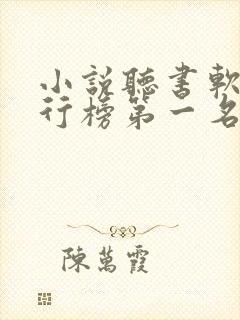 小說聽書軟
行榜第一名
陳萬霞